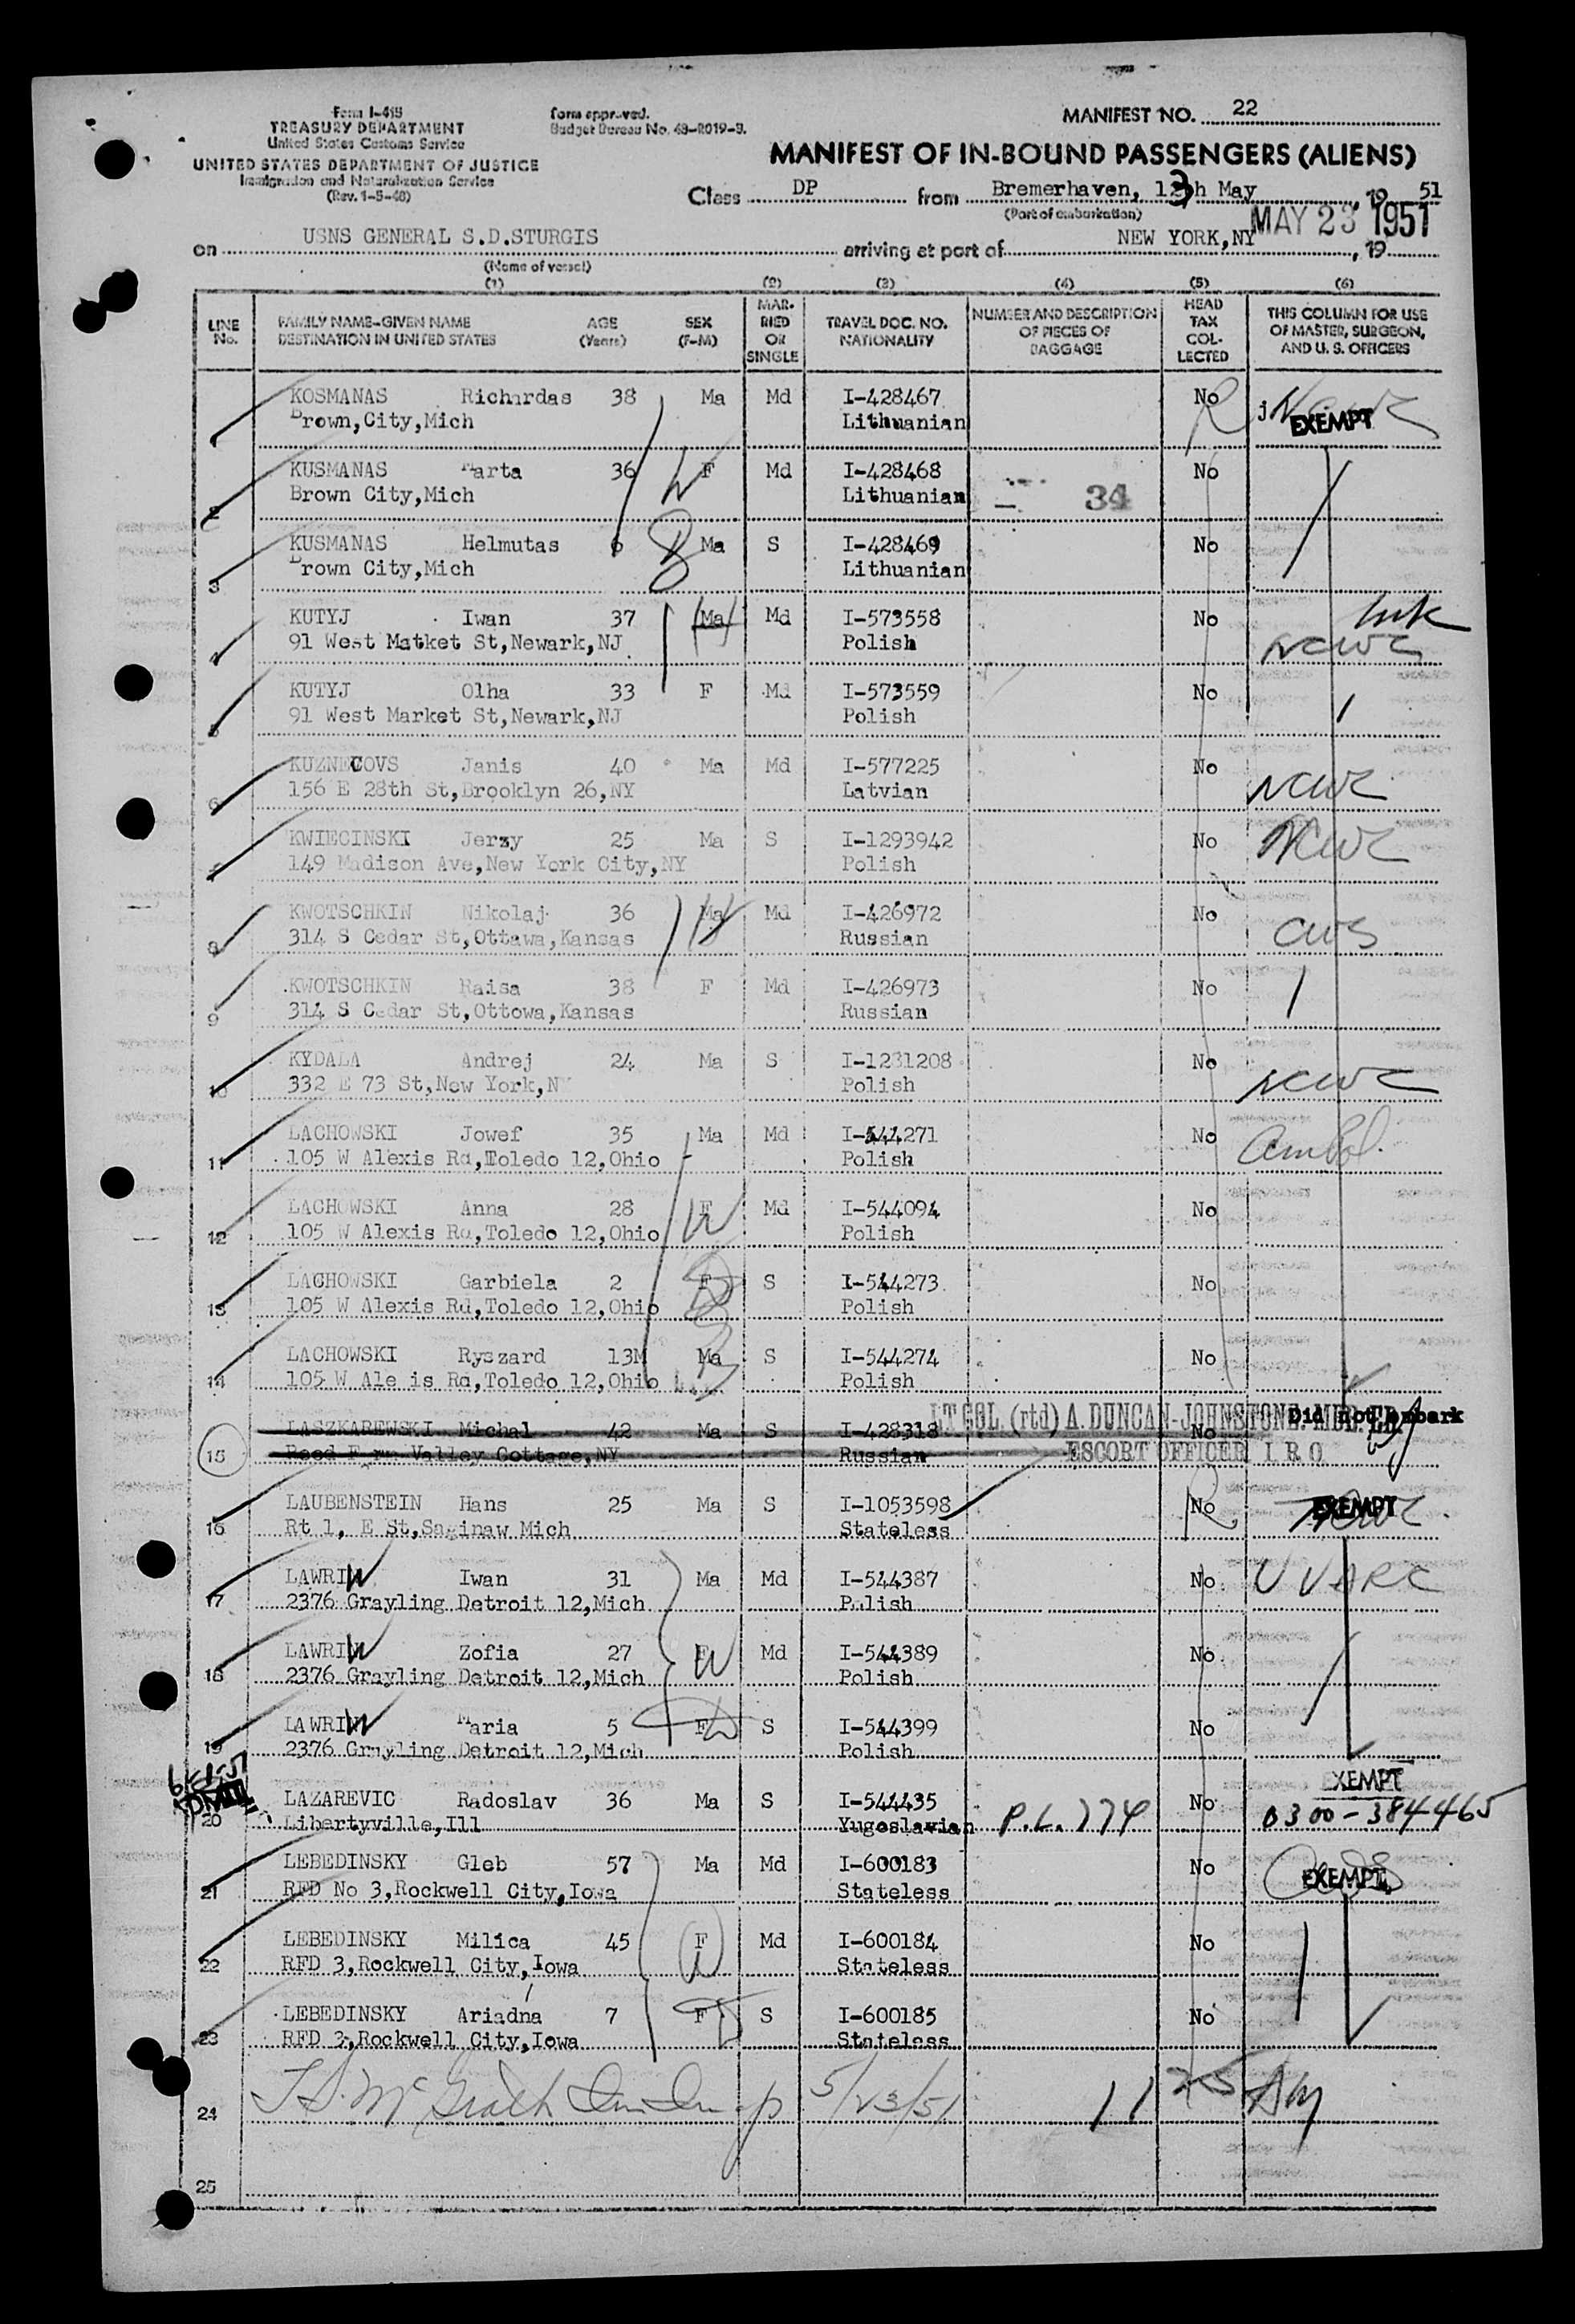 Form I-415
TREASURY DEPARTMENT
United States Customs Service
UNITED STATES DEPARTMENT OF JUSTICE
Immigration and Naturalization Service
(Rev. 1-5-48)
form approved.
Budget Bureau No. 43-R019-3.
MANIFEST NO. 22
MANIFEST OF IN-BOUND PASSENGERS (ALIENS)
Class DP from Bremerhaven, 13h May, 19 51
(Port of embarkation)
MAY 23 1951
on USNS GENERAL S.D.STURGIS arriving at port of NEW YORK,NY, 19
(Name of vessel)
(1) (2) (3) (4) (5) (6)
LINE No. FAMILY NAME-GIVEN NAME DESTINATION IN UNITED STATES AGE (Years) SEX (F-M) MARRIED OR SINGLE TRAVEL DOC. NO. NATIONALITY NUMBER AND DESCRIPTION OF PIECES OF BAGGAGE HEAD TAX COLLECTED THIS COLUMN FOR USE OF MASTER, SURGEON, AND U. S. OFFICERS
1 KOSMANAS Richardas 38 Ma Md I-428467 No EXEMPT
Brown,City,Mich Lithuanian
2 KUSMANAS Marta 36 F Md I-428468 No
Brown City,Mich Lithuanian 34
3 KUSMANAS Helmutas 6 Ma S I-428469 No
Brown City,Mich Lithuanian
4 KUTYJ Iwan 37 Ma Md I-573558 No
91 West Matket St,Newark,NJ Polish NCWC
5 KUTYJ Olha 33 F Md I-573559 No
91 West Market St,Newark,NJ Polish
6 KUZNECOVS Janis 40 Ma Md I-577225 No
156 E 28th St,Brooklyn 26,NY Latvian NCWC
7 KWIECINSKI Jerzy 25 Ma S I-1293942 No NCWC
149 Madison Ave,New York City,NY Polish
8 KWOTSCHKIN Nikolaj 36 Ma Md I-426972 No
314 S Cedar St,Ottawa,Kansas Russian CWS
9 KWOTSCHKIN Raisa 38 F Md I-426973 No
314 S Cedar St,Ottowa,Kansas Russian
10 KYDALA Andrej 24 Ma S I-1231208 No
332 E 73 St,New York,NY Polish NCWC
11 LACHOWSKI Jowef 35 Ma Md I-544271 No
105 W Alexis Rd,Toledo 12,Ohio Polish
12 LACHOWSKI Anna 28 F Md I-544094 No
105 W Alexis Rd,Toledo 12,Ohio Polish
13 LACHOWSKI Garbiela 2 F S I-544273 No
105 W Alexis Rd,Toledo 12,Ohio Polish
14 LACHOWSKI Ryszard 13M Ma S I-544274 No
105 W Ale is Rd,Toledo 12,Ohio Polish
15 LASZKAREWSKI Michal 42 Ma S I-428318 No Did not embark
Reed Farm Valley Cottage,NY Russian
LT COL. (rtd) A. DUNCAN-JOHNSTONE
ESCORT OFFICER I.R.O.
16 LAUBENSTEIN Hans 25 Ma S I-1053598 No EXEMPT
Rt 1, E St,Saginaw Mich Stateless
17 LAWRIW Iwan 31 Ma Md I-544387 No UUARC
2376 Grayling Detroit 12,Mich Polish
18 LAWRIW Zofia 27 F Md I-544389 No
2376 Grayling Detroit 12,Mich Polish
19 LAWRIW Maria 5 F S I-544399 No
2376 Grayling Detroit 12,Mich Polish
20 LAZAREVIC Radoslav 36 Ma S I-544435 No EXEMPT
Libertyville,Ill Yugoslavian P.L. 774 0300-384465
21 LEBEDINSKY Gleb 57 Ma Md I-600183 No EXEMPT
RFD No 3,Rockwell City,Iowa Stateless
22 LEBEDINSKY Milica 45 F Md I-600184 No
RFD 3,Rockwell City,Iowa Stateless
23 LEBEDINSKY Ariadna 7 F S I-600185 No
RFD 3,Rockwell City,Iowa Stateless
24 McGrath 5/23/51 11 25 AM
25